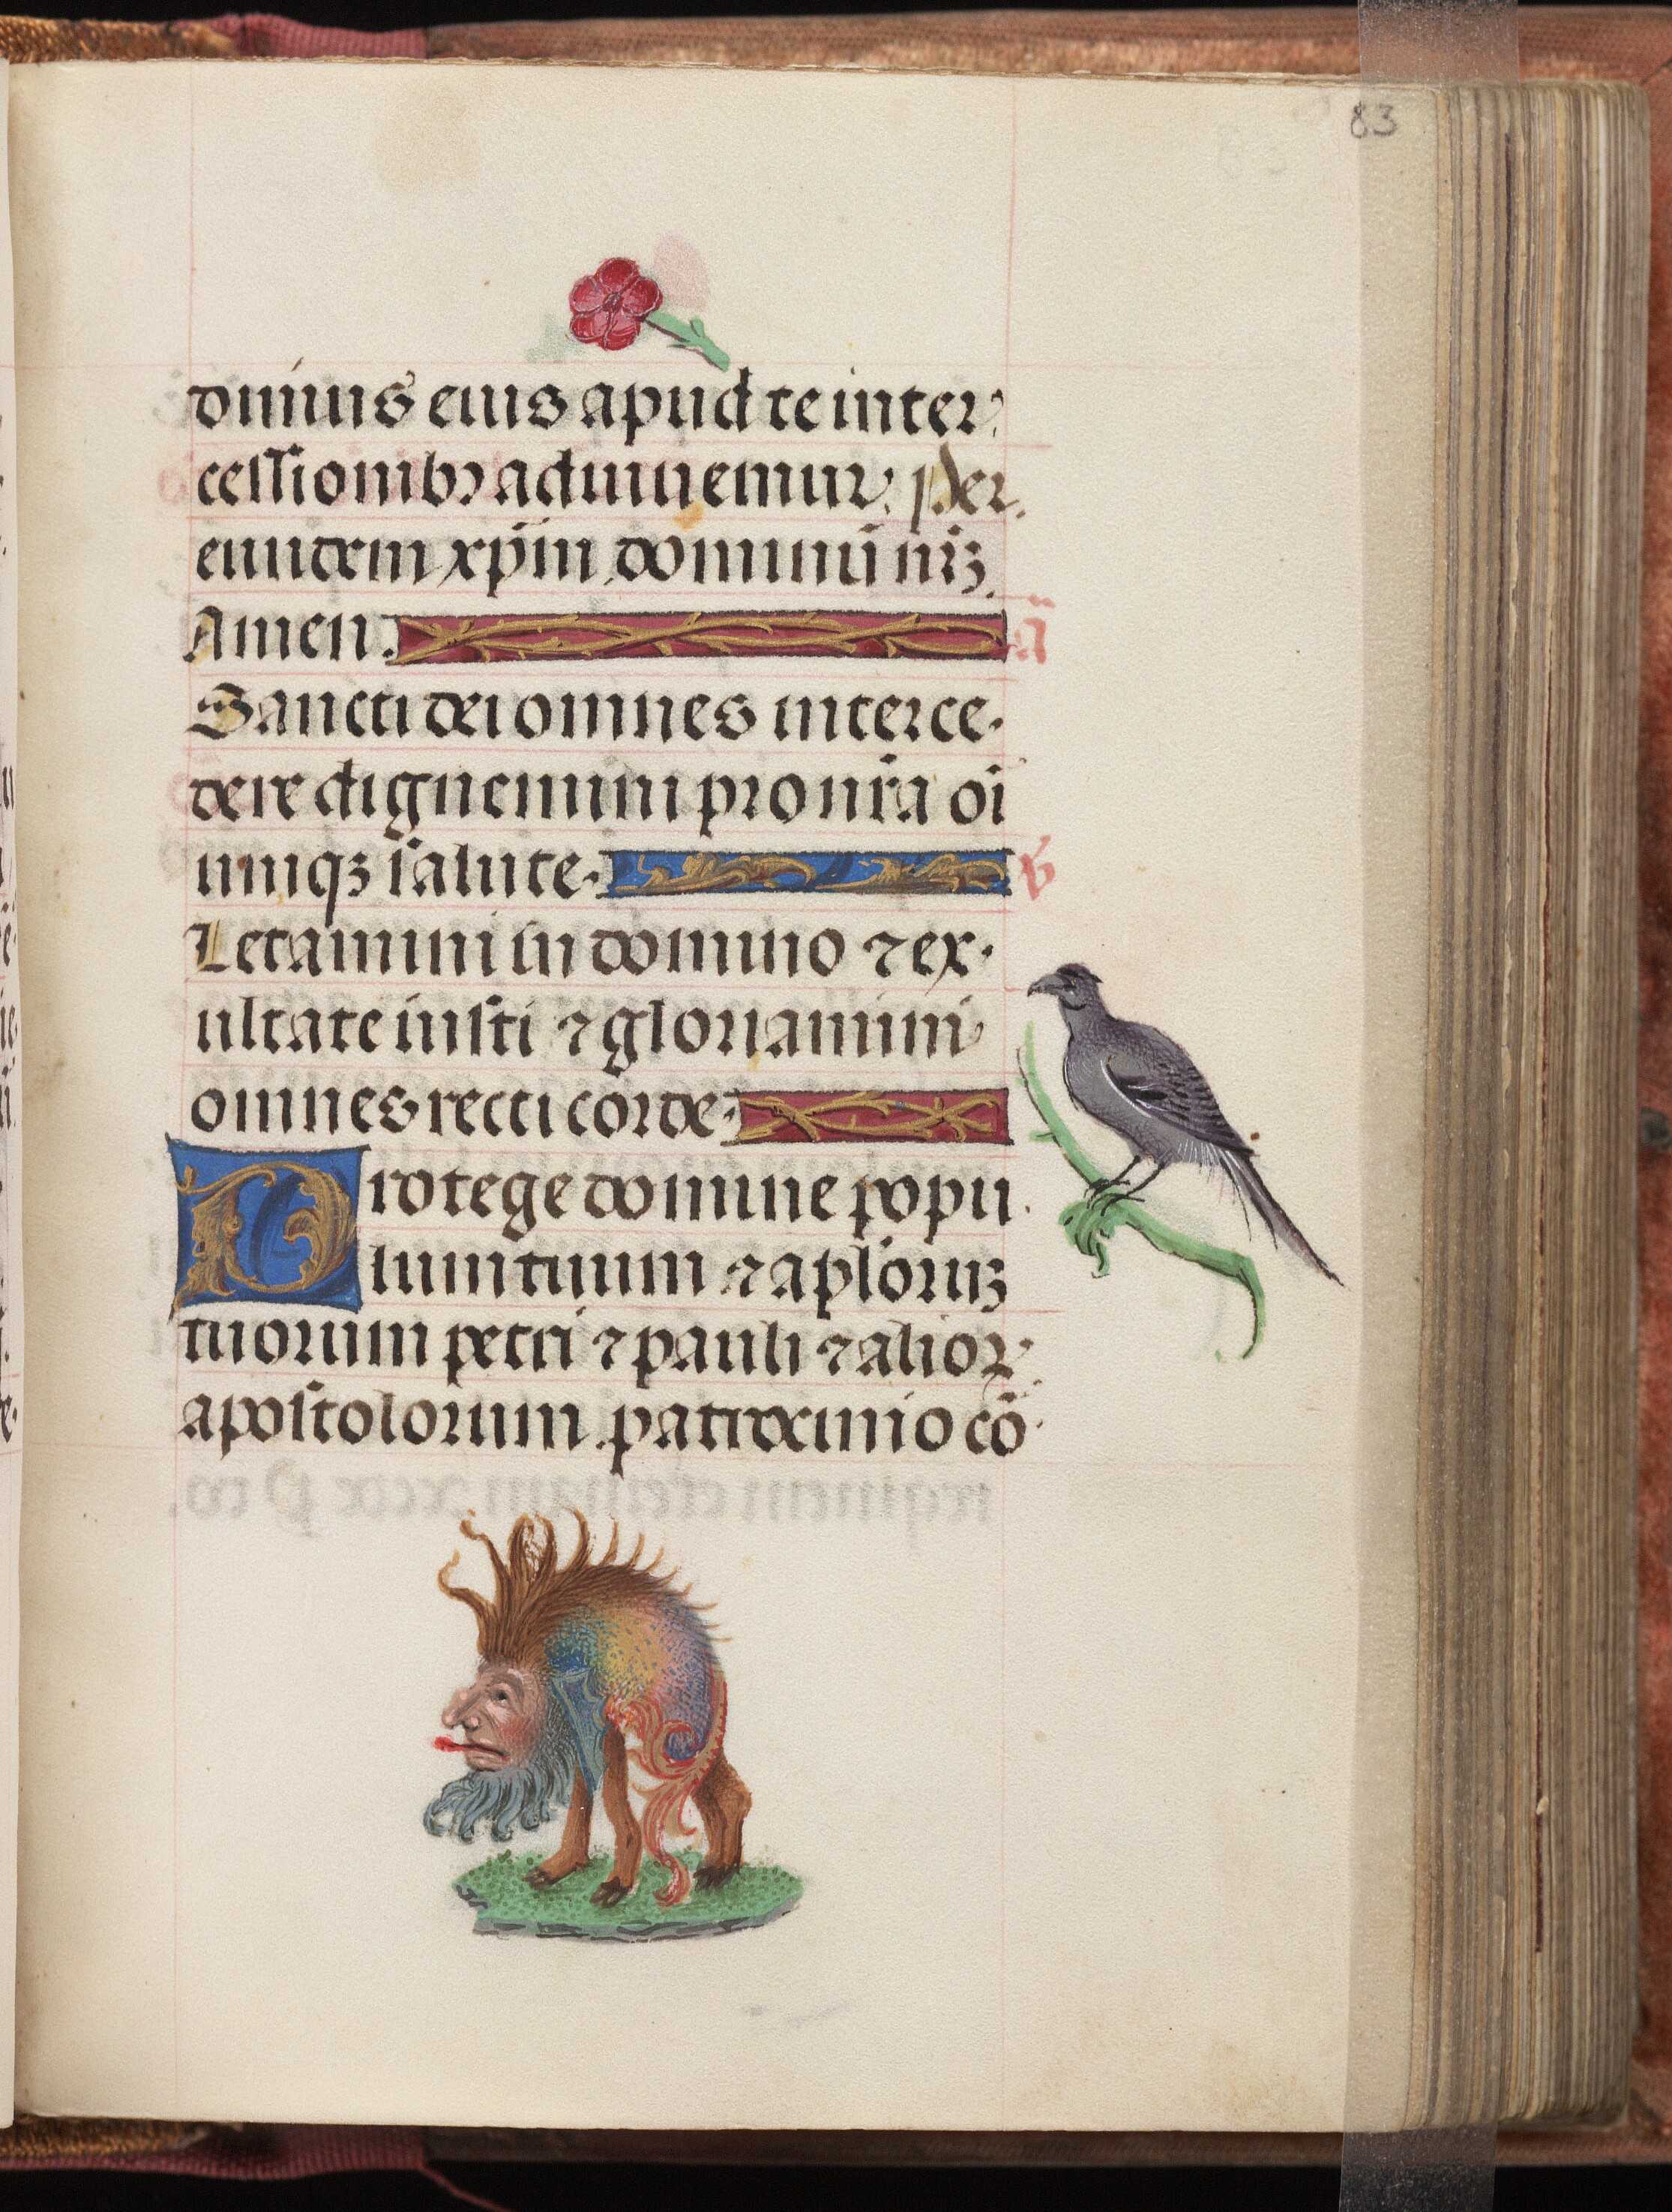 83
dmus eius apud te inter
cessionibꝫ adiuuemur. Per
eundem xp̄m dominū nr̄ꝫ.
Amen. a᷑
Sancti dei omnes interce
dere dignemini pro nr̄a oi
umqꝫ salute. v̄
Letamini in domino ⁊ ex
ultate iusti ⁊ gloriamini
omnes recti corde.
Protege domine popu
lum tuum ⁊ apl̄oruꝫ
tuorum petri ⁊ pauli ⁊ alioꝝ
apostolorum patrocinio cō